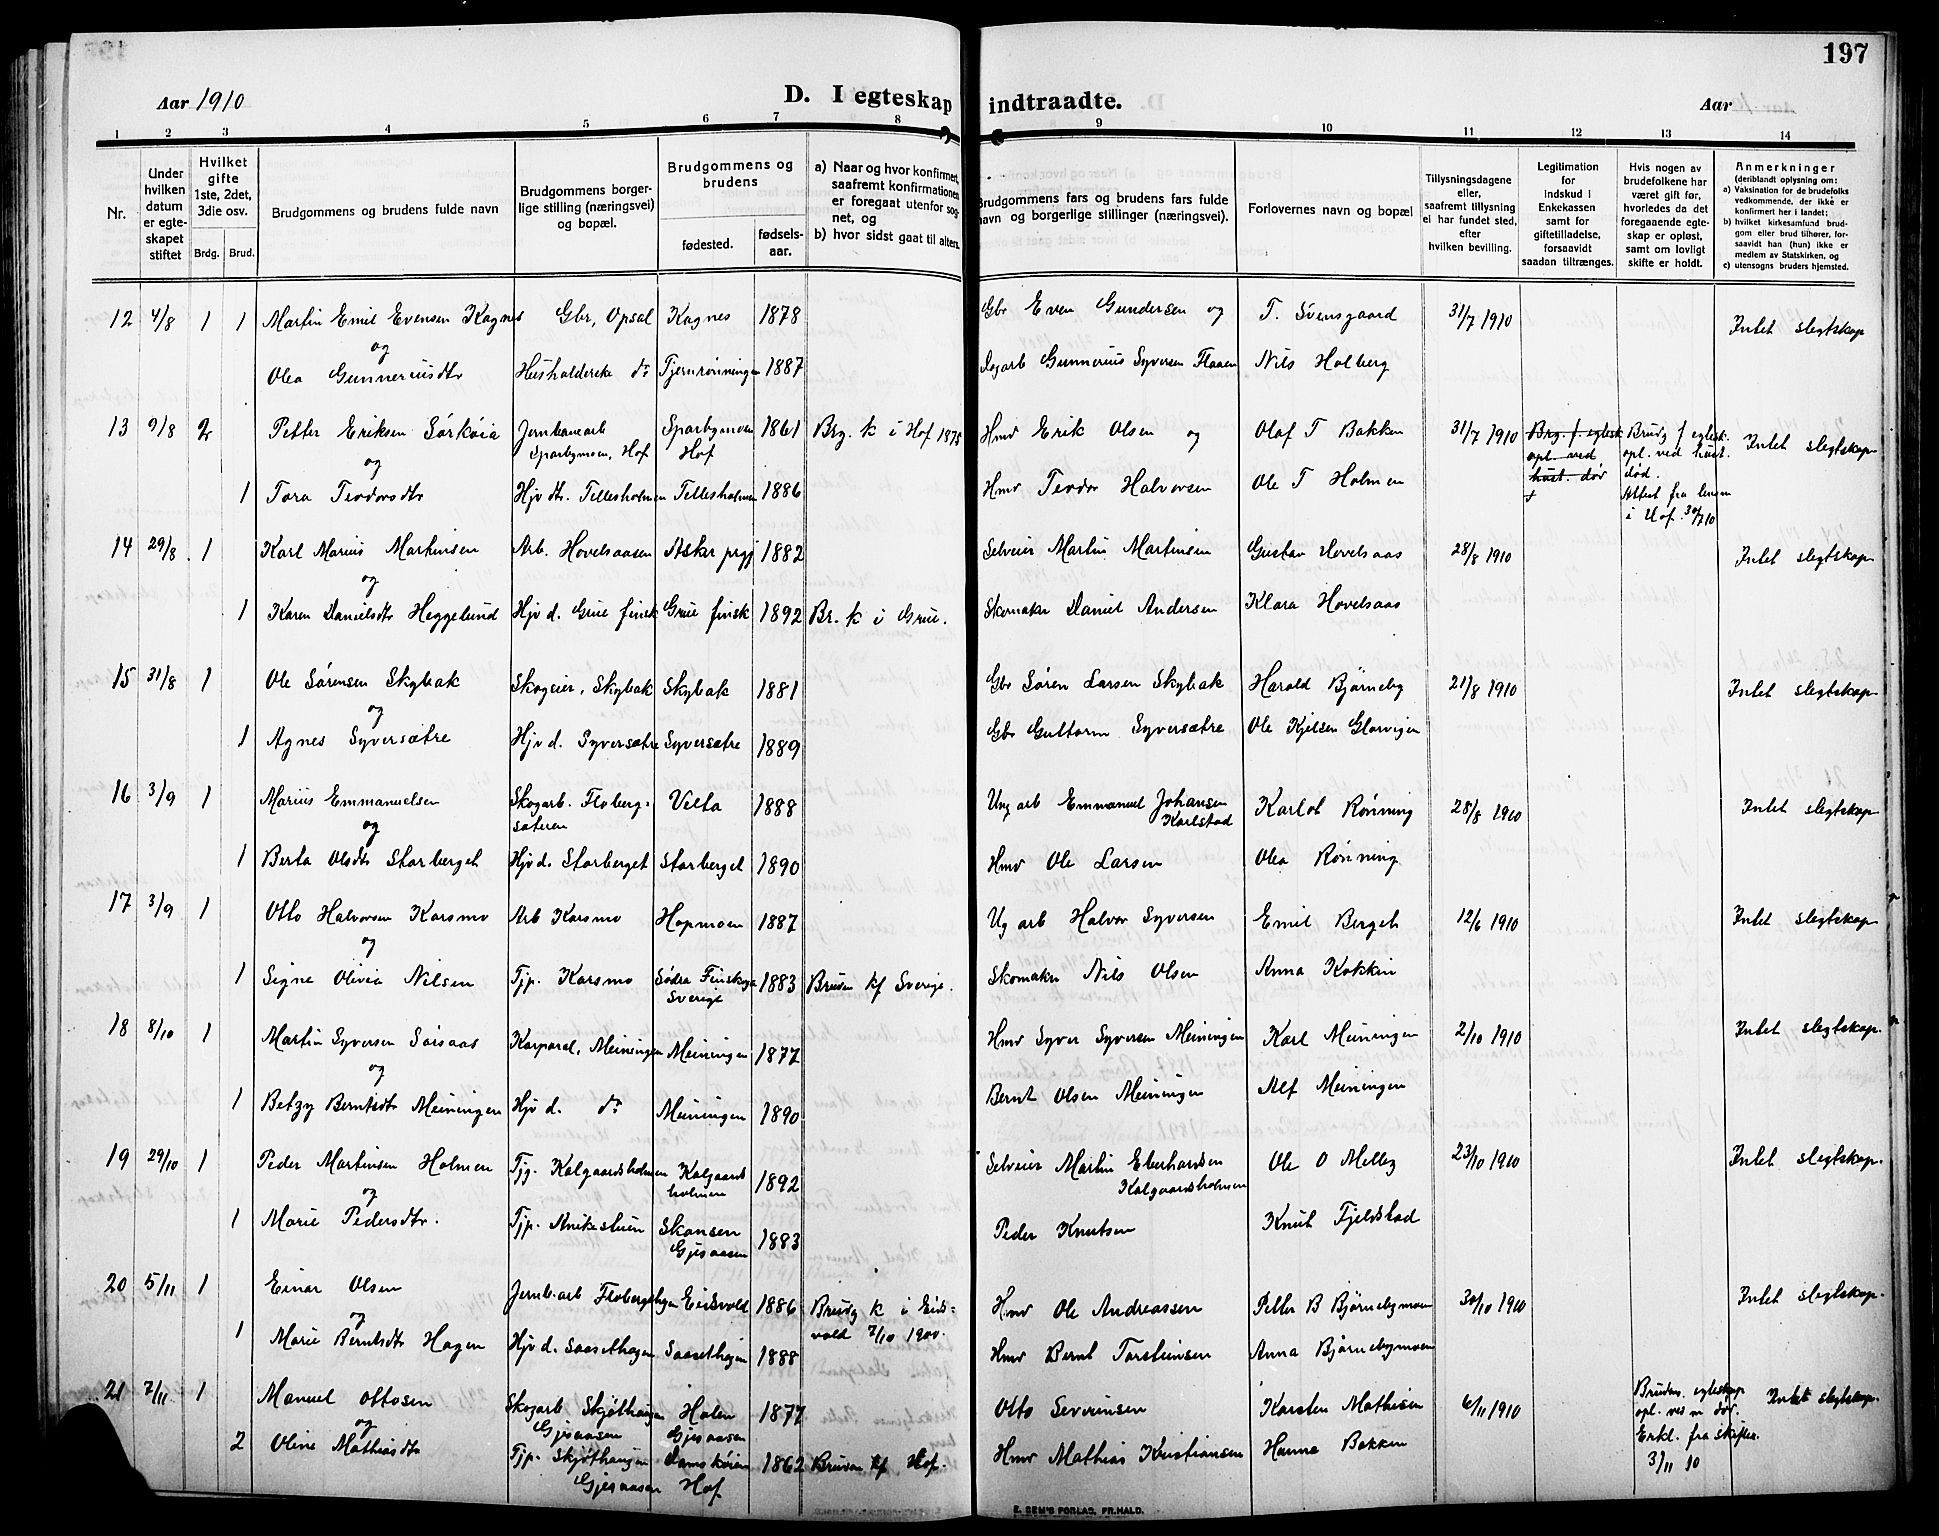 197
Aar 1910 D. I egteskap indtraadte. Aar
1 2 3 4 5 6 7 8 9 10 11 12 13 14
Nr.
Under hvilken datum er egteskapet stiftet
Hvilket gifte 1ste, 2det, 3die osv.
Brdg. Brud.
Brudgommens og brudens fulde navn
Brudgommens borgerlige stilling (næringsvei) og bopæl.
Brudgommens og brudens
fødested. fødselsaar.
a) Naar og hvor konfirmert, saafremt konfirmationen er foregaat utenfor sognet, og
b) hvor sidst gaat til alters.
Brudgommens fars og brudens fars fulde navn og borgerlige stillinger (næringsvei).
Forlovernes navn og bopæl
Tillysningsdagene eller, saafremt tillysning ei har fundet sted, efter hvilken bevilling.
Legitimation for indskud i Enkekassen samt for giftetilladelse, forsaavidt saadan tiltrænges.
Hvis nogen av brudefolkene har været gift før, hvorledes da det foregaaende egteskap er opløst, samt om lovligt skifte er holdt.
Anmerkninger (deriblandt oplysning om:
a) Vaksination for de brudefolks vedkommende, der ikke er konfirmert her i landet;
b) hvilket kirkesamfund brudgom eller brud tilhører, forsaavidt han (hun) ikke er medlem av Statskirken, og
c) utensogns bruders hjemsted.
12 4/8 1 1 Martin Emil Evensen Kagnes Gbr, Opsal Kagnes 1878 Gbr Even Gundersen og T. Svensgaard 31/7 1910 Intet slegtskap
og
Olea Gunneriusdtr Husholderske do Tjernrønningen 1887 Dagarb Gunnerius Syversen Flaaen Nils Holberg
13 9/8 2 Petter Eriksen Sørkøia Jernbanearb Sparbymoen, Hof Sparbymoen Hof 1861 Brg. k i Hof 1875 Hmd Erik Olsen og Olaf T Bakken 31/7 1910 Brg. f. egtesk opl. ved hust. dør Brudg f egtesk. opl. ved hust. død. Attest fra lensm i Hof. 30/7 10 Intet slegtskap
og
1 Tora Teodorsdtr Hjv dtr. Tellesholmen Tellesholmen 1886 Hmd Teodor Halvorsen Ole T Holmen
14 29/8 1 Karl Marius Martinsen Arb. Hovelsaasen Asker prgj 1882 Selveier Martin Martinsen Gustav Hovelsaas 28/8 1910 Intet slegtskap
og
1 Karen Danielsdtr Heggelund Hjv d. Grue finsk Grue finsk 1892 Br. k i Grue. Skomaker Daniel Andersen Klara Hovelsaas
15 31/8 1 Ole Sørensen Skybak Skogeier, Skybak Skybak 1881 Gbr Søren Larsen Skybak Harald Bjørneby 21/8 1910 Intet slegtskap
og
1 Agnes Syversætre Hjv d. Syversætre Syversætre 1889 Gbr Guttorm Syversætre Ole Kjelsen Glorvigen
16 3/9 1 Marius Emmanuelsen Skogarb. Flobergsæteren Velta 1888 Ung arb Emmanuel Johansen Karlstad Karlot Rønning 28/8 1910 Intet slegtskap
og
1 Berta Olsdtr Storberget Hjv d. Storberget Storberget 1890 Hmd Ole Larsen Olea Rønning
17 3/9 1 Otto Halvorsen Karsmo Arb Karsmo Hopmoen 1887 Ug arb Halvor Syversen Emil Berget 12/6 1910 Intet slegtskap
og
1 Signe Olivia Nilsen Tjp. Karsmo Södra Finskoga Sverige 1883 Bruden kf Sverige. Skomaker Nils Olsen Anna Kokkin
18 8/10 1 Martin Syversen Sørsaas Korporal, Meiningen Meiningen 1877 Hmd Syver Syversen Meiningen Karl Meiningen 2/10 1910 Intet slegtskap.
og
1 Betzy Berntsdtr Meiningen Hjv d. do Meiningen 1890 Bernt Olsen Meiningen Alf Meiningen
19 29/10 1 Peder Martinsen Holmen Tjg. Kalgaardsholmen Kalgaardsholmen 1892 Selveier Martin Eberhardsen Kalgaardsholmen Ole O Melby 23/10 1910 Intet slegtskap.
og
1 Marie Pedersdtr. Tjp. Skansen Gjesaasen 1883 Peder Knutsen Knut Fjeldstad
20 5/11 1 Einar Olsen Jernb.arb Eidsvold 1886 Brudg k i Eidsvold 7/10 1900. Hmd Ole Andreassen Petter B Bjørnebymoen 30/10 1910 Intet slegtskap.
og
1 Marie Berntsdtr Hagen Hjv d. Saasethagen Saasethagen 1888 Hmd Bernt Torsteinsen Anna Bjørnebymoen
21 7/11 1 Manuel Ottosen Skogarb Skjøthaugen Gjesaasen Holen Gjesaasen 1877 Otto Severinsen Karsten Mathisen 6/11 1910 Brudens egteskap opl. ved m død. Erkl. fra skifter. 3/11 10 Intet slegtskap.
og
2 Oline Mathiasdtr Tjp. Skjøthaugen Gjesaasen Damskøien Hof 1862 Bruden kf Hof. Hmd Mathias Kristiansen Hanna Bakken
E. SEM'S FORLAG, FR.HALD.